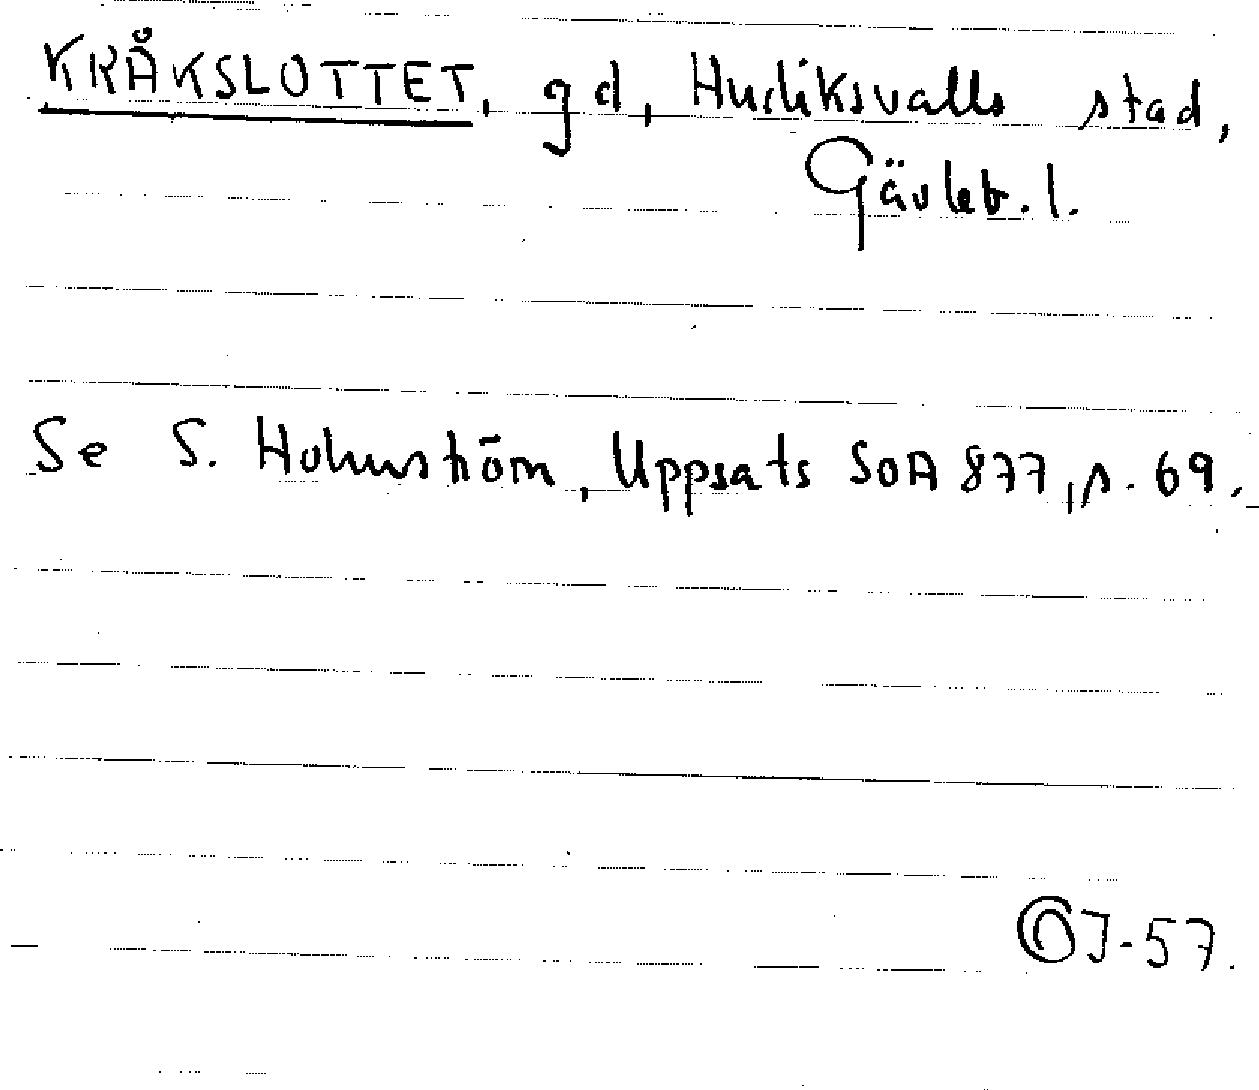 KRÅKSLOTTET, gd, Hudiksvalls stad,
Gävleb. l.
Se S. Holmström, Uppsats SOA 877, s. 69.
OJ-57.